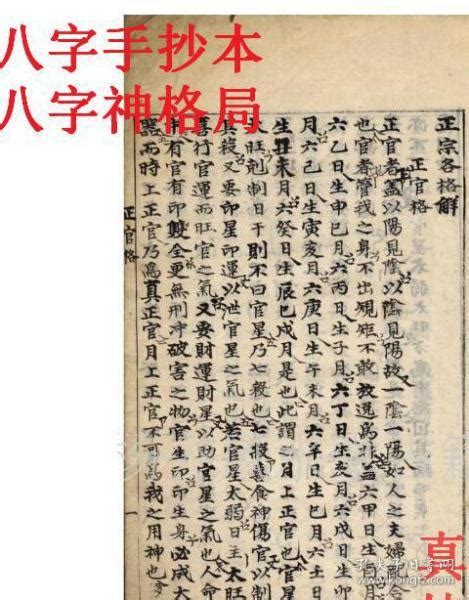 八字手抄本
八字神格局
正宗各格解
正官格
正官者蓋以陽見陰以陰見陽故一陰一陽如人之夫婦配合
也官者管我之身不出規矩不敢放逸爲非蓋六甲日生酉月
六乙日生申巳月六丙日生子月六丁日生亥月六戊日生卯
月六己日生寅亥月六庚日生午未月六辛日生巳月六壬日
生丑未月六癸日生辰巳戌月是也此謂之月上正官也官星
太旺剋制日干則不曰官星乃七殺也七殺喜食神傷官以制
其殺又要印星印運以世官星之氣也若官星太弱日主太旺
喜行官運而旺官之氣又要財運財星以助官星之氣也人命
中有官有印雙全更無刑冲破害之物官生印印生身必成大
器而時上正官乃爲真正官月上正官不可爲我之用神也
正官格
一
真
孔夫子旧书网